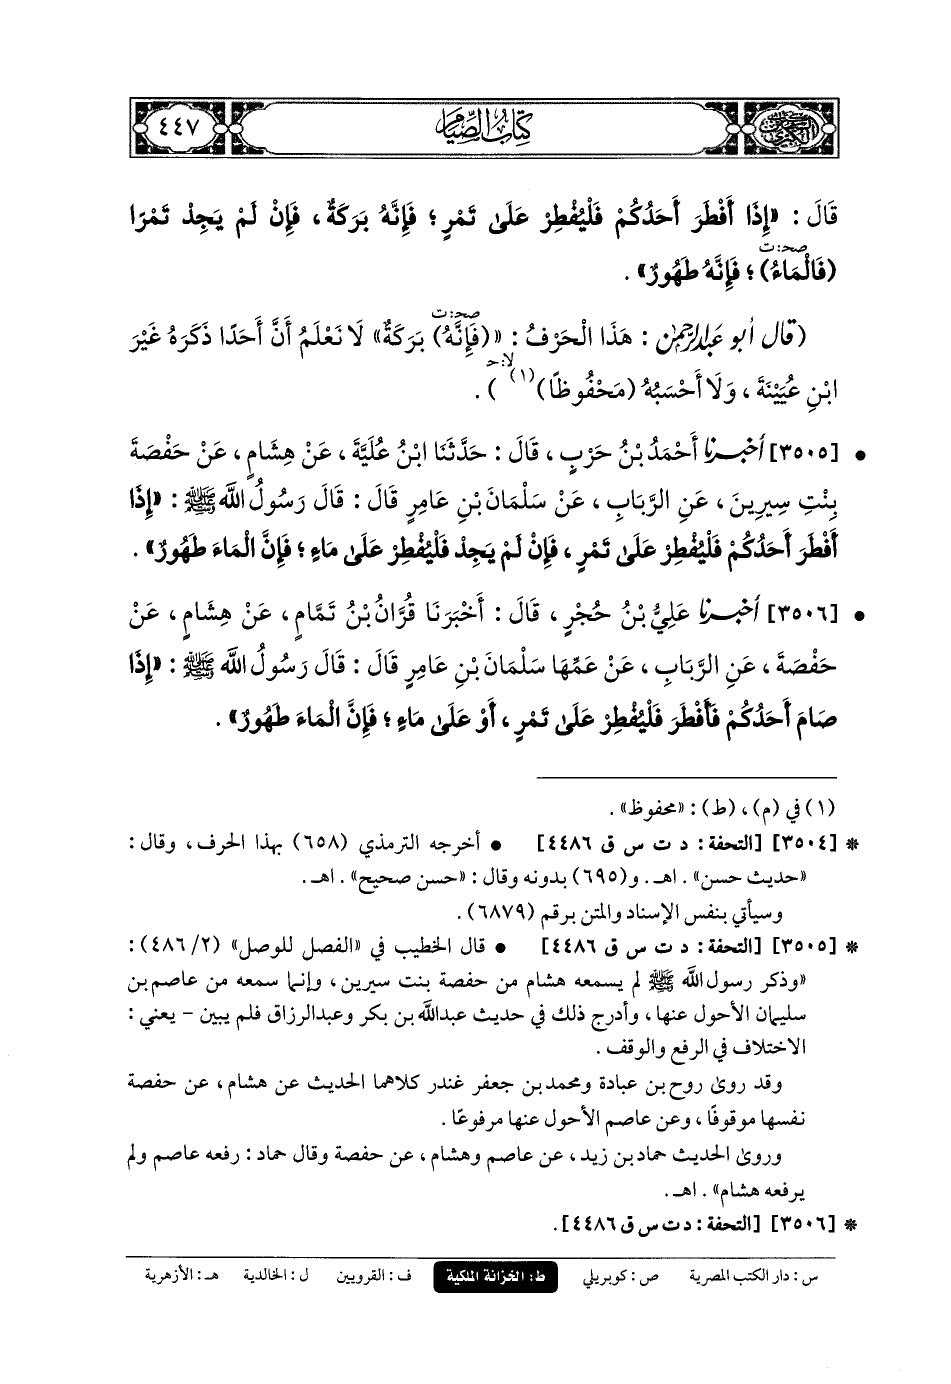 كتاب الصيام
٤٤٧
قَالَ : «إِذَا أَفْطَرَ أَحَدُكُمْ فَلْيُفْطِرْ عَلَىٰ تَمْرٍ ؛ فَإِنَّهُ بَرَكَةٌ ، فَإِنْ لَمْ يَجِدْ تَمْرًا
صحـ:ت
(فَالْمَاءُ) ؛ فَإِنَّهُ طَهُورٌ» .
صحـ:ت
(قال أبو عبدالرحمن : هَذَا الْحَرْفُ : «(فَإِنَّهُ) بَرَكَةٌ» لَا نَعْلَمُ أَنَّ أَحَدًا ذَكَرَهُ غَيْرَ
لا:حـ
ابْنِ عُيَيْنَةَ ، وَلَا أَحْسَبُهُ (مَحْفُوظًا)(١) ) .
• [٣٥٠٥] أخبرنا أَحْمَدُ بْنُ حَرْبٍ ، قَالَ : حَدَّثَنَا ابْنُ عُلَيَّةَ ، عَنْ هِشَامٍ ، عَنْ حَفْصَةَ
بِنْتِ سِيرِينَ ، عَنِ الرَّبَابِ ، عَنْ سَلْمَانَ بْنِ عَامِرٍ قَالَ : قَالَ رَسُولُ اللَّهِ ﷺ : «إِذَا
أَفْطَرَ أَحَدُكُمْ فَلْيُفْطِرْ عَلَىٰ تَمْرٍ ، فَإِنْ لَمْ يَجِدْ فَلْيُفْطِرْ عَلَىٰ مَاءٍ ؛ فَإِنَّ الْمَاءَ طَهُورٌ» .
• [٣٥٠٦] أخبرنا عَلِيُّ بْنُ حُجْرٍ ، قَالَ : أَخْبَرَنَا قُرَّانُ بْنُ تَمَّامٍ ، عَنْ هِشَامٍ ، عَنْ
حَفْصَةَ ، عَنِ الرَّبَابِ ، عَنْ عَمِّهَا سَلْمَانَ بْنِ عَامِرٍ قَالَ : قَالَ رَسُولُ اللَّهِ ﷺ : «إِذَا
صَامَ أَحَدُكُمْ فَأَفْطَرَ فَلْيُفْطِرْ عَلَىٰ تَمْرٍ ، أَوْ عَلَىٰ مَاءٍ ؛ فَإِنَّ الْمَاءَ طَهُورٌ» .
(١) في (م) ، (ط) : «محفوظ» .
* [٣٥٠٤] [التحفة : د ت س ق ٤٤٨٦] • أخرجه الترمذي (٦٥٨) بهذا الحرف ، وقال :
«حديث حسن» . اهـ . و(٦٩٥) بدونه وقال : «حسن صحيح» . اهـ .
وسيأتي بنفس الإسناد والمتن برقم (٦٨٧٩) .
* [٣٥٠٥] [التحفة : د ت س ق ٤٤٨٦] • قال الخطيب في «الفصل للوصل» (٢/ ٤٨٦) :
«وذكر رسول الله ﷺ لم يسمعه هشام من حفصة بنت سيرين ، وإنما سمعه من عاصم بن
سليمان الأحول عنها ، وأدرج ذلك في حديث عبدالله بن بكر وعبدالرزاق فلم يبين - يعني :
الاختلاف في الرفع والوقف .
وقد روى روح بن عبادة ومحمد بن جعفر غندر كلاهما الحديث عن هشام ، عن حفصة
نفسها موقوفًا ، وعن عاصم الأحول عنها مرفوعًا .
وروى الحديث حماد بن زيد ، عن عاصم وهشام ، عن حفصة وقال حماد : رفعه عاصم ولم
يرفعه هشام» . اهـ .
* [٣٥٠٦] [التحفة : د ت س ق ٤٤٨٦] .
س : دار الكتب المصرية ص : كوبريلي ط : الخزانة الملكية ف : القرويين ل : الخالدية هـ : الأزهرية